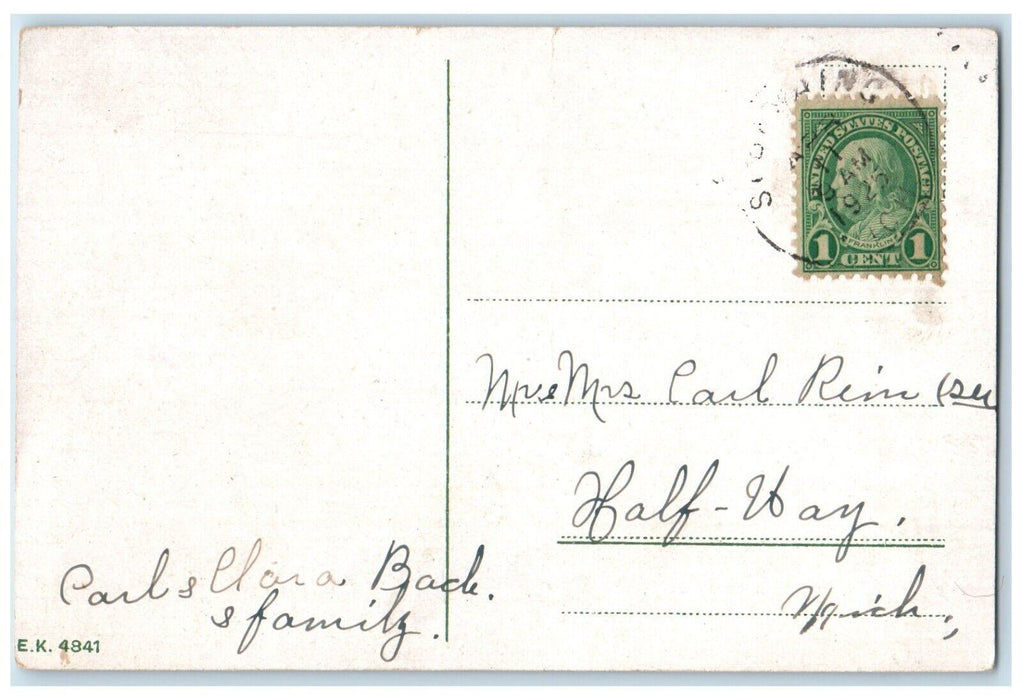 UNITED STATES POSTAGE
FRANKLIN
1 CENT 1
AM
Mr & Mrs Carl Rein (sen
Half-Way.
Mich,
Carl & Clara Back.
& family.
E.K. 4841